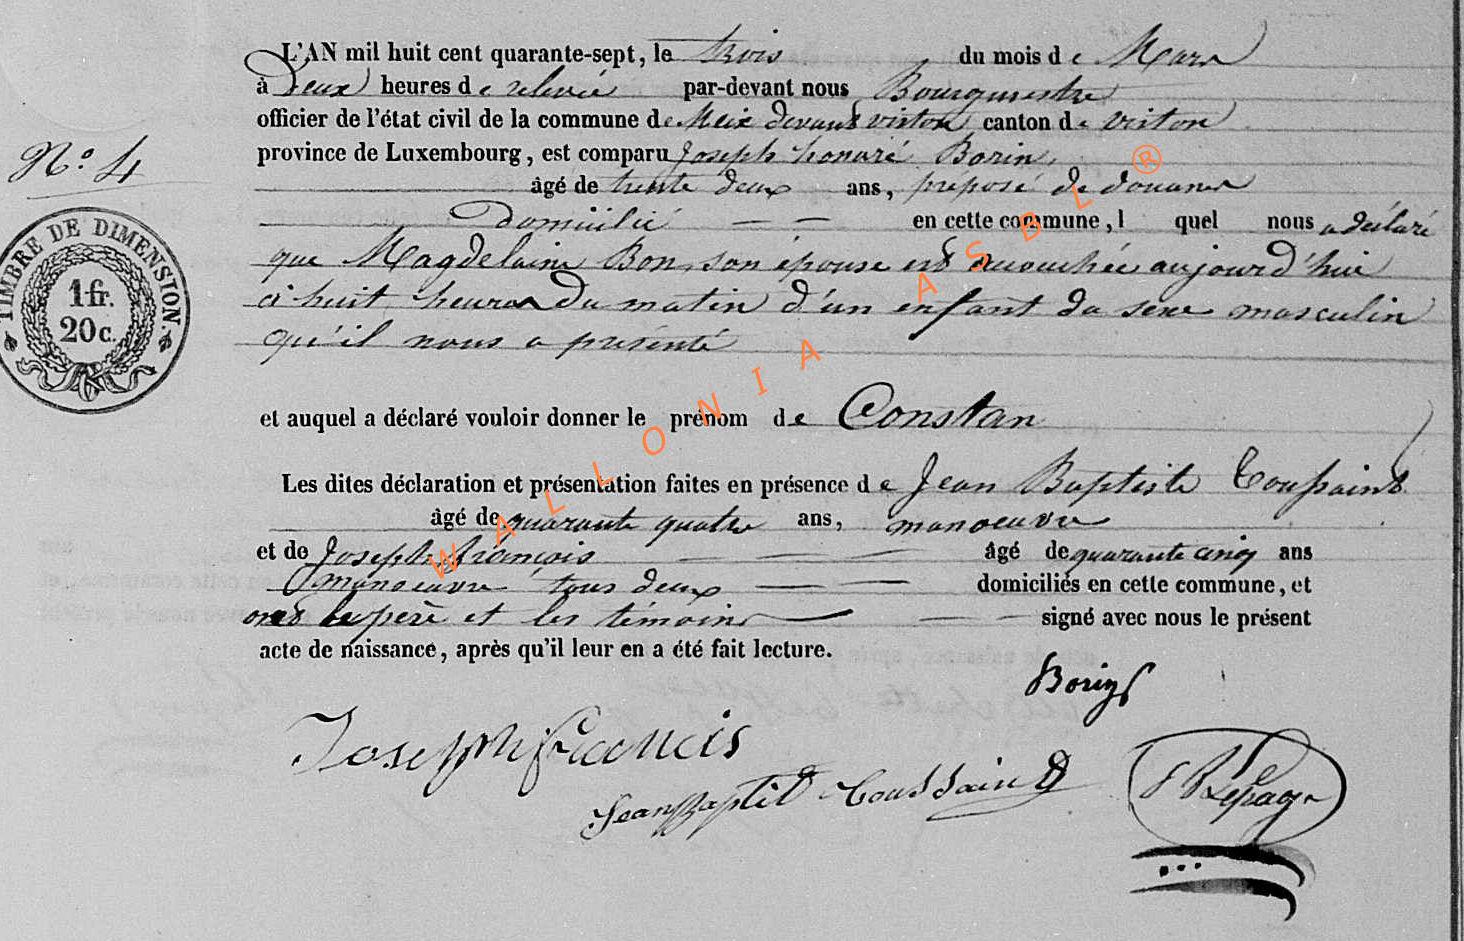 L'AN mil huit cent quarante-sept, le trois du mois de Mars
à Deux heures de relevée par-devant nous Bourgmestre
officier de l'état civil de la commune de Meix devant virton canton de virton
province de Luxembourg, est comparu Joseph honoré Borin,
âgé de trente deux ans, préposé de douanes
Domicilié en cette commune, l quel nous a déclaré
que Magdelaine Bon, son épouse est accouchée aujourd'hui
à huit heures du matin d'un enfant du sexe masculin
qu'il nous a présenté
N.° 4
TIMBRE DE DIMENSION.
1 fr.
20 c.
et auquel a déclaré vouloir donner le prénom de Constan
Les dites déclaration et présentation faites en présence de Jean Baptiste Toussaint
âgé de quarante quatre ans, manoeuvre
et de Joseph françois âgé de quarante cinq ans
manoeuvre tous deux domiciliés en cette commune, et
ont le père et les témoins signé avec nous le présent
acte de naissance, après qu'il leur en a été fait lecture.
Borin
Joseph Francis
Jean Baptist Toussaint
Lepage
WALLONIA ASBL ®